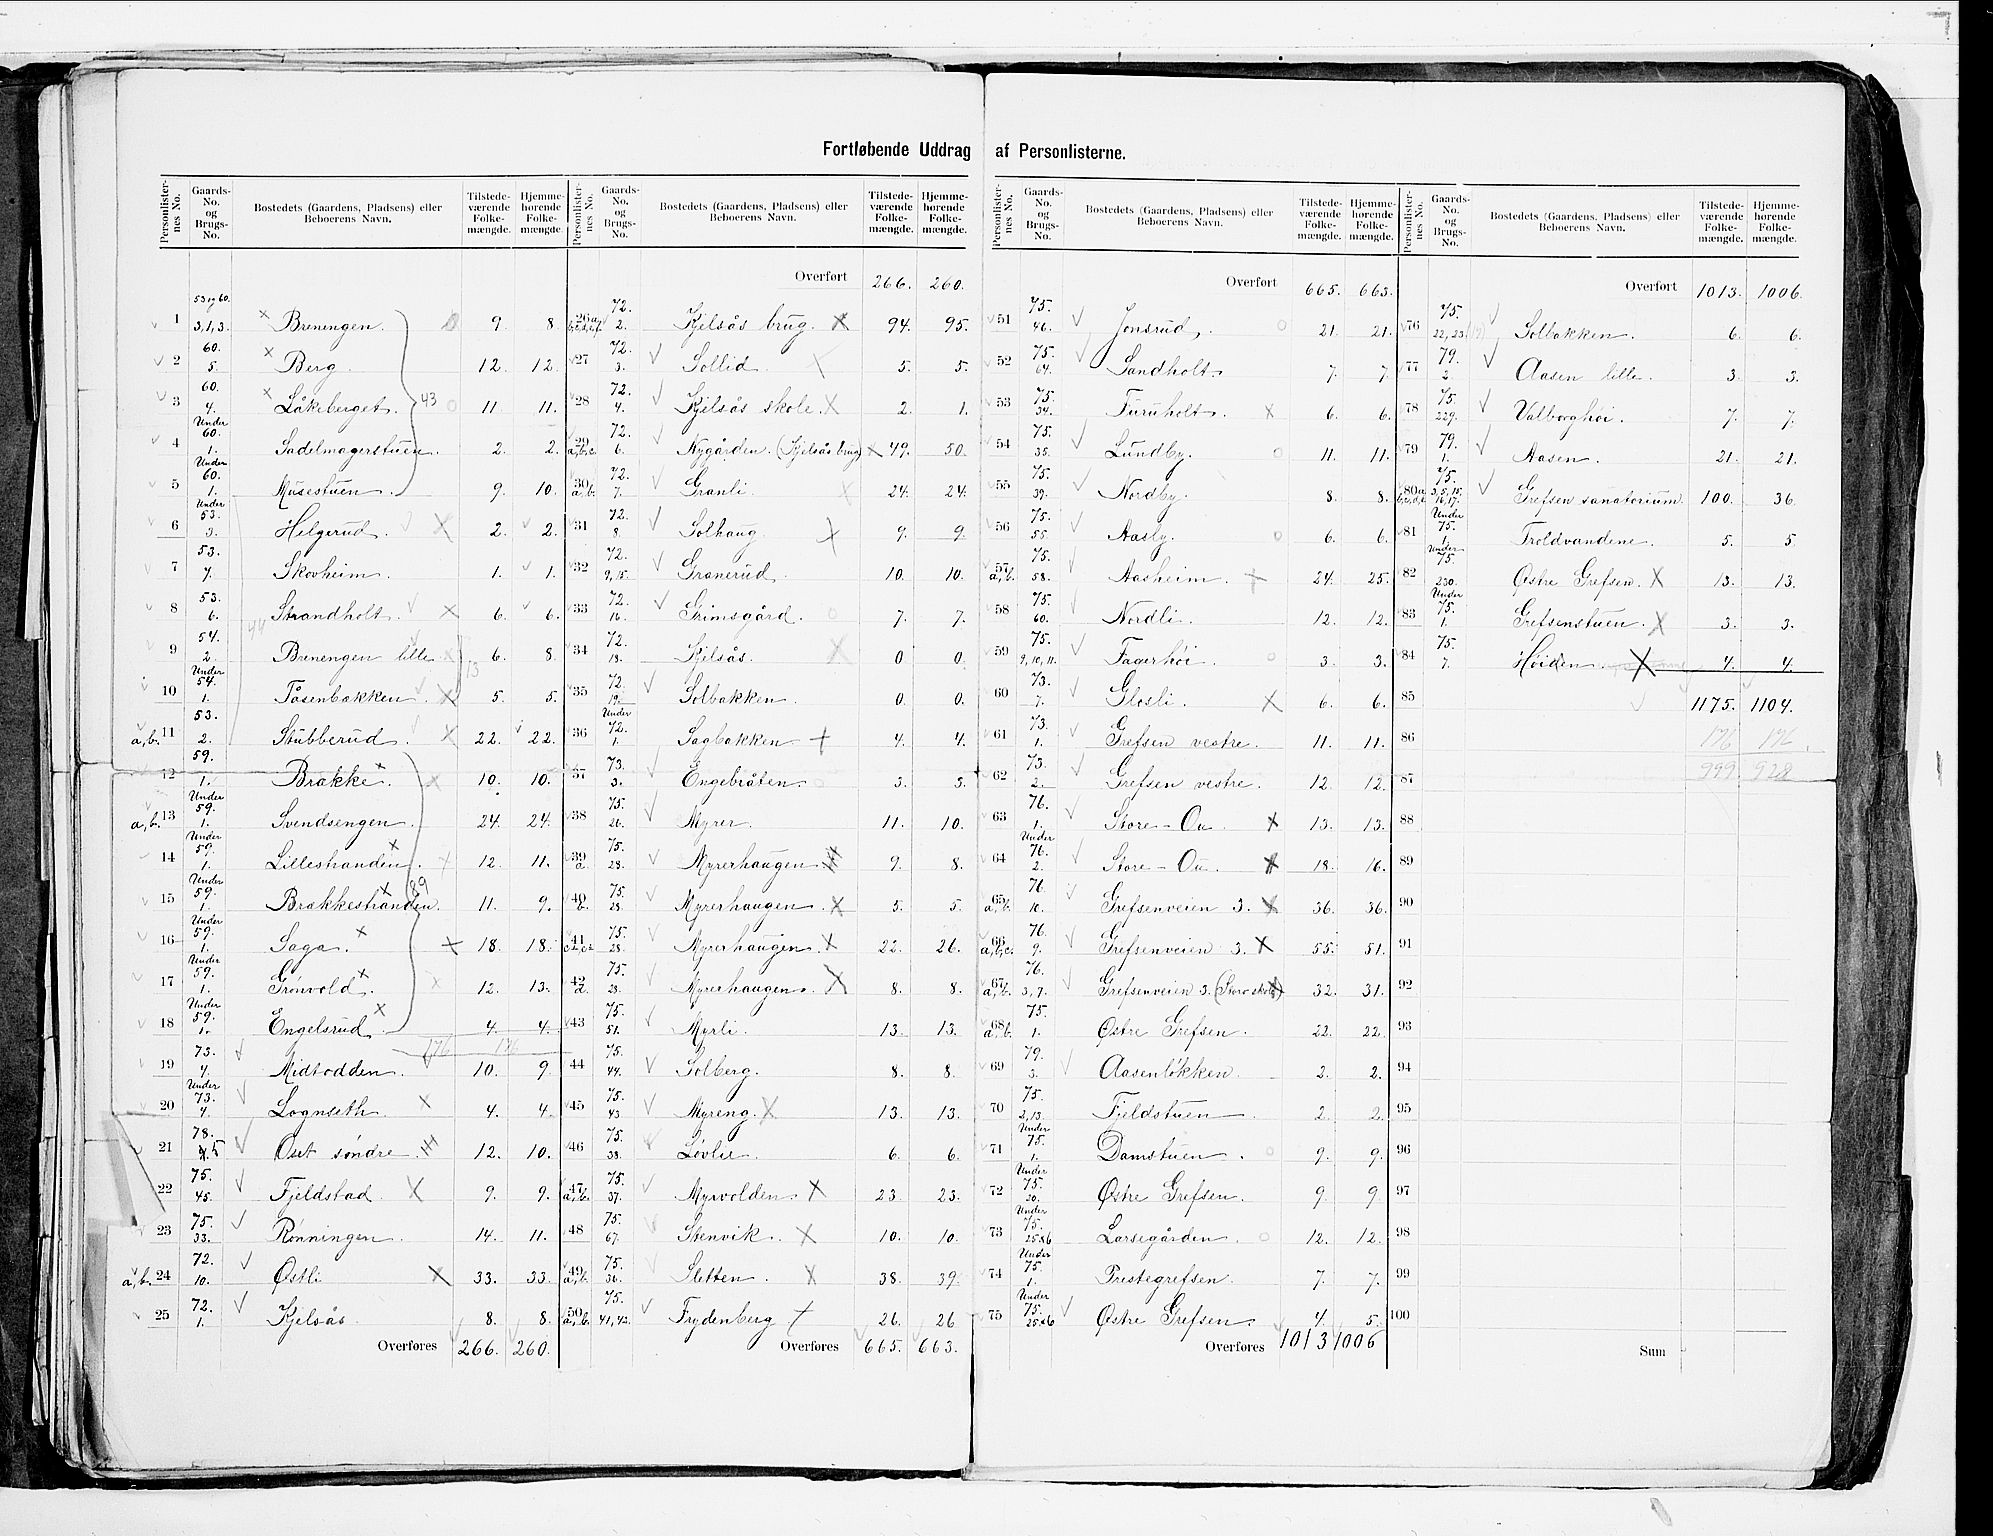 Fortløbende Uddrag af Personlisterne.
Personlisternes No. Gaards-No. og Brugs-No. Bostedets (Gaardens, Pladsens) eller Beboerens Navn. Tilstedeværende Folkemængde. Hjemmehørende Folkemængde.
1 53 og 60. 3,1,3. Breningen. 9. 8.
2 60. 5. Berg. 12. 12.
3 60. 4. Låkeberget. 11. 11.
4 Under 60. 1. Sadelmagerstuen. 2. 2.
5 Under 60. 1. Musestuen. 9. 10.
6 Under 53. 3. Helgerud. 2. 2.
7 53. 7. Skovheim. 1. 1.
8 53. 6. Strandholt. 6. 6.
9 54. 2. Breningen lille 6. 8.
10 Under 54. 1. Tåsenbakken. 5. 5.
a,b. 11 53. 2. Stubberud. 22. 22.
12 59. 1. Brække. 10. 10.
a,b. 13 Under 59. 1. Svendsengen. 24. 24.
14 Under 59. 1. Lillestranden. 12. 11.
15 Under 59. 1. Brækkestranden. 11. 9.
16 Under 59. 1. Saga. 18. 18.
17 Under 59. 1. Grønvold. 12. 13.
18 Under 59. 1. Engelsrud. 4. 4.
176 176
19 75. 4. Midtodden. 10. 9.
20 Under 73. 4. Lognseth. 4. 4.
21 78. 5 Oset søndre. 12. 10.
22 75. 45. Fjeldstad. 9. 9.
23 75. 33. Rønningen. 14. 11.
a,b. 24 72. 10. Østli 33. 33.
25 72. 1. Kjelsås. 8. 8.
Overføres 266. 260.
43
44
13
89
Personlisternes No. Gaards-No. og Brugs-No. Bostedets (Gaardens, Pladsens) eller Beboerens Navn. Tilstedeværende Folkemængde. Hjemmehørende Folkemængde.
Overført 266. 260.
26 72. 2. Kjelsås brug. 94. 95.
27 72. 3. Sollid. 5. 5.
28 72. 4. Kjelsås skole. 2. 1.
29 a,b,c. 72. 6. Nygården. (Kjelsås brug) 49. 50.
30 a,b. 72. 7. Granli. 24. 24.
31 72. 8. Solhaug. 9. 9.
32 72. 9,15. Granerud. 10. 10.
33 72. 16. Grimsgård. 7. 7.
34 72. 18. Kjelsås. 0. 0.
35 72. 19. Solbakken. 0. 0.
36 Under 72. 1. Sagbakken. 4. 4.
37 73. 3. Engebråten. 3. 3.
38 75. 26. Myrer. 11. 10.
39 a. 75. 28. Myrerhaugen. 9. 8.
40 b. 75. 28. Myrerhaugen. 5. 5.
41 75. 28. Myrerhaugen. 22. 26.
42 d. 75. 28. Myrerhaugen. 8. 8.
43 75. 51. Myrli. 13. 13.
44 75. 44. Solberg. 8. 8.
45 75. 43 Myreng. 13. 13.
46 75. 38. Løvlie. 6. 6.
47 a,b. 75. 37. Myrvolden. 23. 23.
48 75. 67. Stenvik. 10. 10.
49 a,b. 75. 36. Sletten. 38. 39.
50 a,b. 75. 41,42. Frydenberg 26. 26
Overføres 665. 663.
Personlisternes No. Gaards-No. og Brugs-No. Bostedets (Gaardens, Pladsens) eller Beboerens Navn. Tilstedeværende Folkemængde. Hjemmehørende Folkemængde.
Overført 665. 663.
51 75. 46. Jonsrud. 21. 21.
52 75. 64. Sandholt. 7. 7.
53 75. 34. Furuholt. 6. 6.
54 75. 35. Lundby. 11. 11.
55 75. 39. Nordby. 8. 8.
56 75. 55. Aasly. 6. 6.
57 a,b. 75. 58. Aasheim. 24. 25.
58 75. 60. Nordli. 12. 12.
59 75. 9,10,11. Fagerhøi. 3. 3.
60 73. 7. Glosli. 6. 6.
61 73. 1. Grefsen vestre. 11. 11.
62 73. 2. Grefsen vestre. 12. 12.
63 76. 1. Store-Ou. 13. 13.
64 Under 76. 2. Store-Ou. 18. 16.
65 a,b. 76. 10. Grefsenveien 3. 36. 36.
66 a,b,c. 76. 9. Grefsenveien 3. 55. 51.
67 a,b. 76. 3,7. Grefsenveien 3. (Storo skole) 32. 31.
68 a,b. 75. 1. Østre Grefsen. 22. 22.
69 79. 3. Aasenløkken. 2. 2.
70 75. 2,13. Fjeldstuen 2. 2.
71 Under 75. 1. Damstuen. 9. 9.
72 Under 75. 20. Østre Grefsen. 9. 9
73 Under 75. 25 Larsegården. 12. 12.
74 Under 75. 1. Prestegrefsen. 7. 7.
75 Under 75. 25 Østre Grefsen. 4. 5.
Overføres 1013 1006
Personlisternes No. Gaards-No. og Brugs-No. Bostedets (Gaardens, Pladsens) eller Beboerens Navn. Tilstedeværende Folkemængde. Hjemmehørende Folkemængde.
Overført 1013. 1006.
76 75. 22,23. Solbakken. 6. 6.
77 79. 2. Aasen lille. 3. 3.
78 75. 229. Valborghøi. 7. 7.
79 79. 1. Aasen. 21. 21.
80 75. 3,5,15, 16,17. Grefsen sanatorium. 100. 36.
81 Under 75. 1. Troldvandene. 5. 5
82 Under 75. 230. Østre Grefsen. 13. 13.
83 Under 75. 1. Grefsenstuen. 3. 3.
84 75. 7. Høiden. 4. 4.
85 1175. 1104.
86 176 176
87 999 928
88
89
90
91
92
93
94
95
96
97
98
99
100
Sum